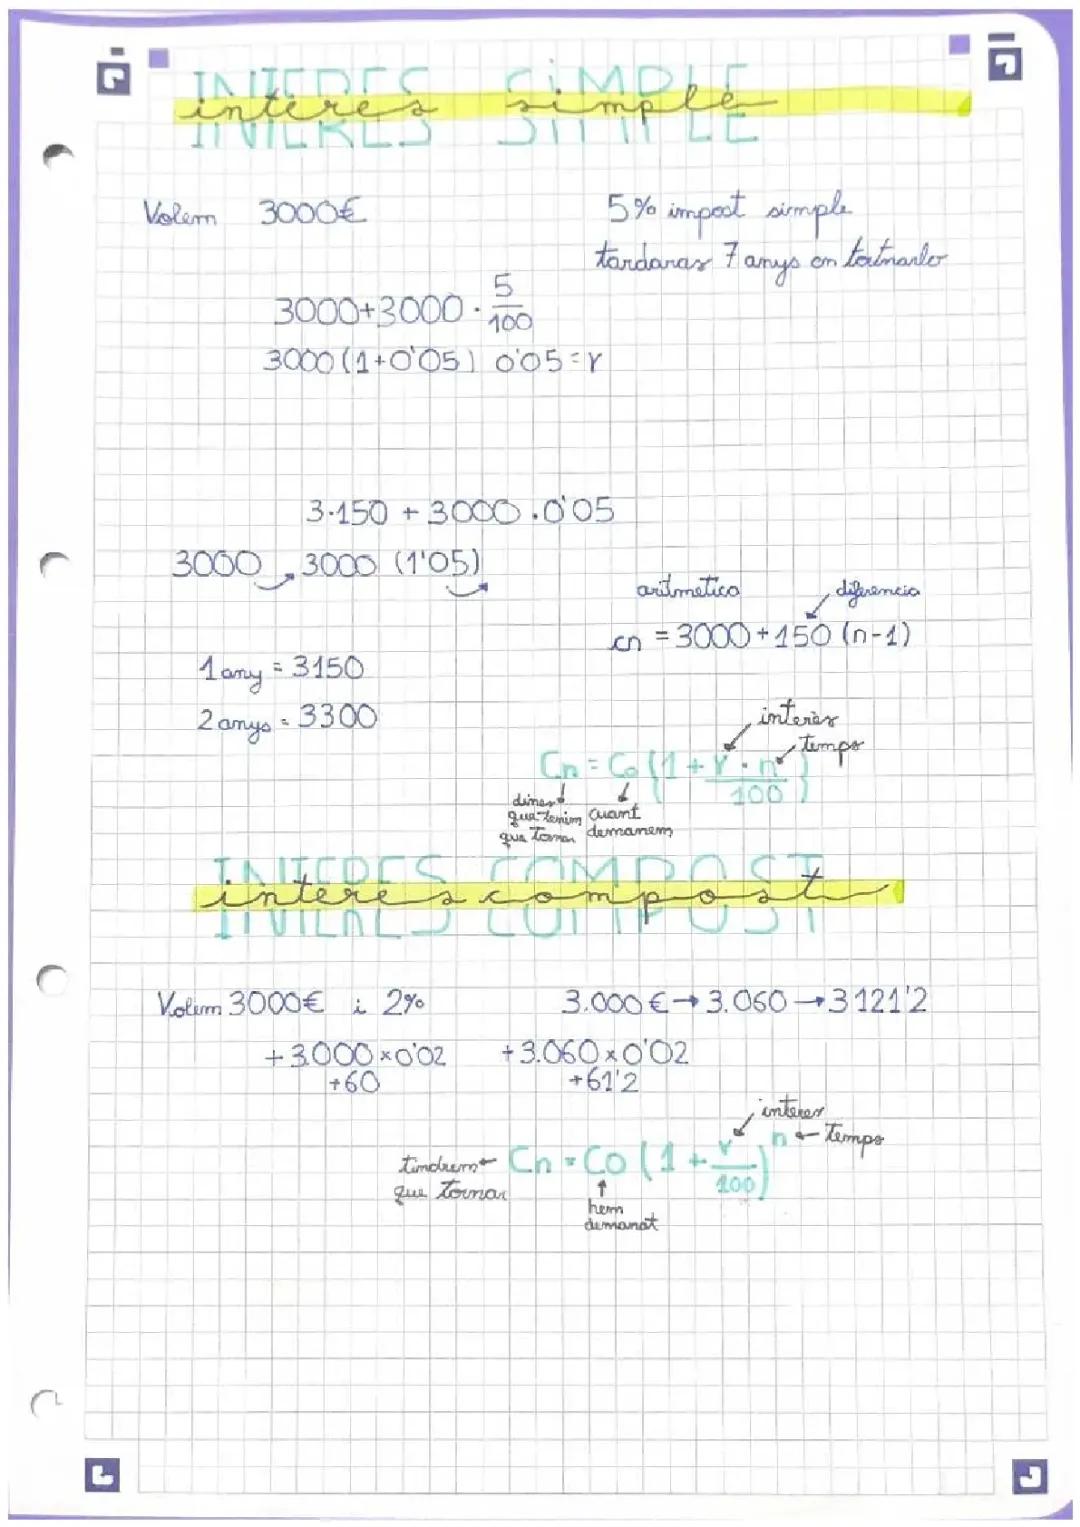 INTERES SIMPLE
interes simple
Volem 3000€
5% impost simple
tardaras 7 anys en
3000+3000 · 5/100
3000(1+0'05) 0'05=r
3.150 + 3000 . 0'05
3000 3000 (1'05)
aritmetico diferencia
cn = 3000+150 (n-1)
1 any = 3150
2 anys = 3300
interès
temps
Cn = Co (1 + r · n / 100)
diners
que tenim
que tornar
cuant
demanem
INTERES COMPOST
interes compost
Volem 3000€ i 2% 3.000€→3.060→3121'2
+3.000×0'02 +3.060×0'02
+60 +61'2
interes
n ← temps
tindrem ← Cn = Co (1 + r/100)
que tornar
hem
demanat